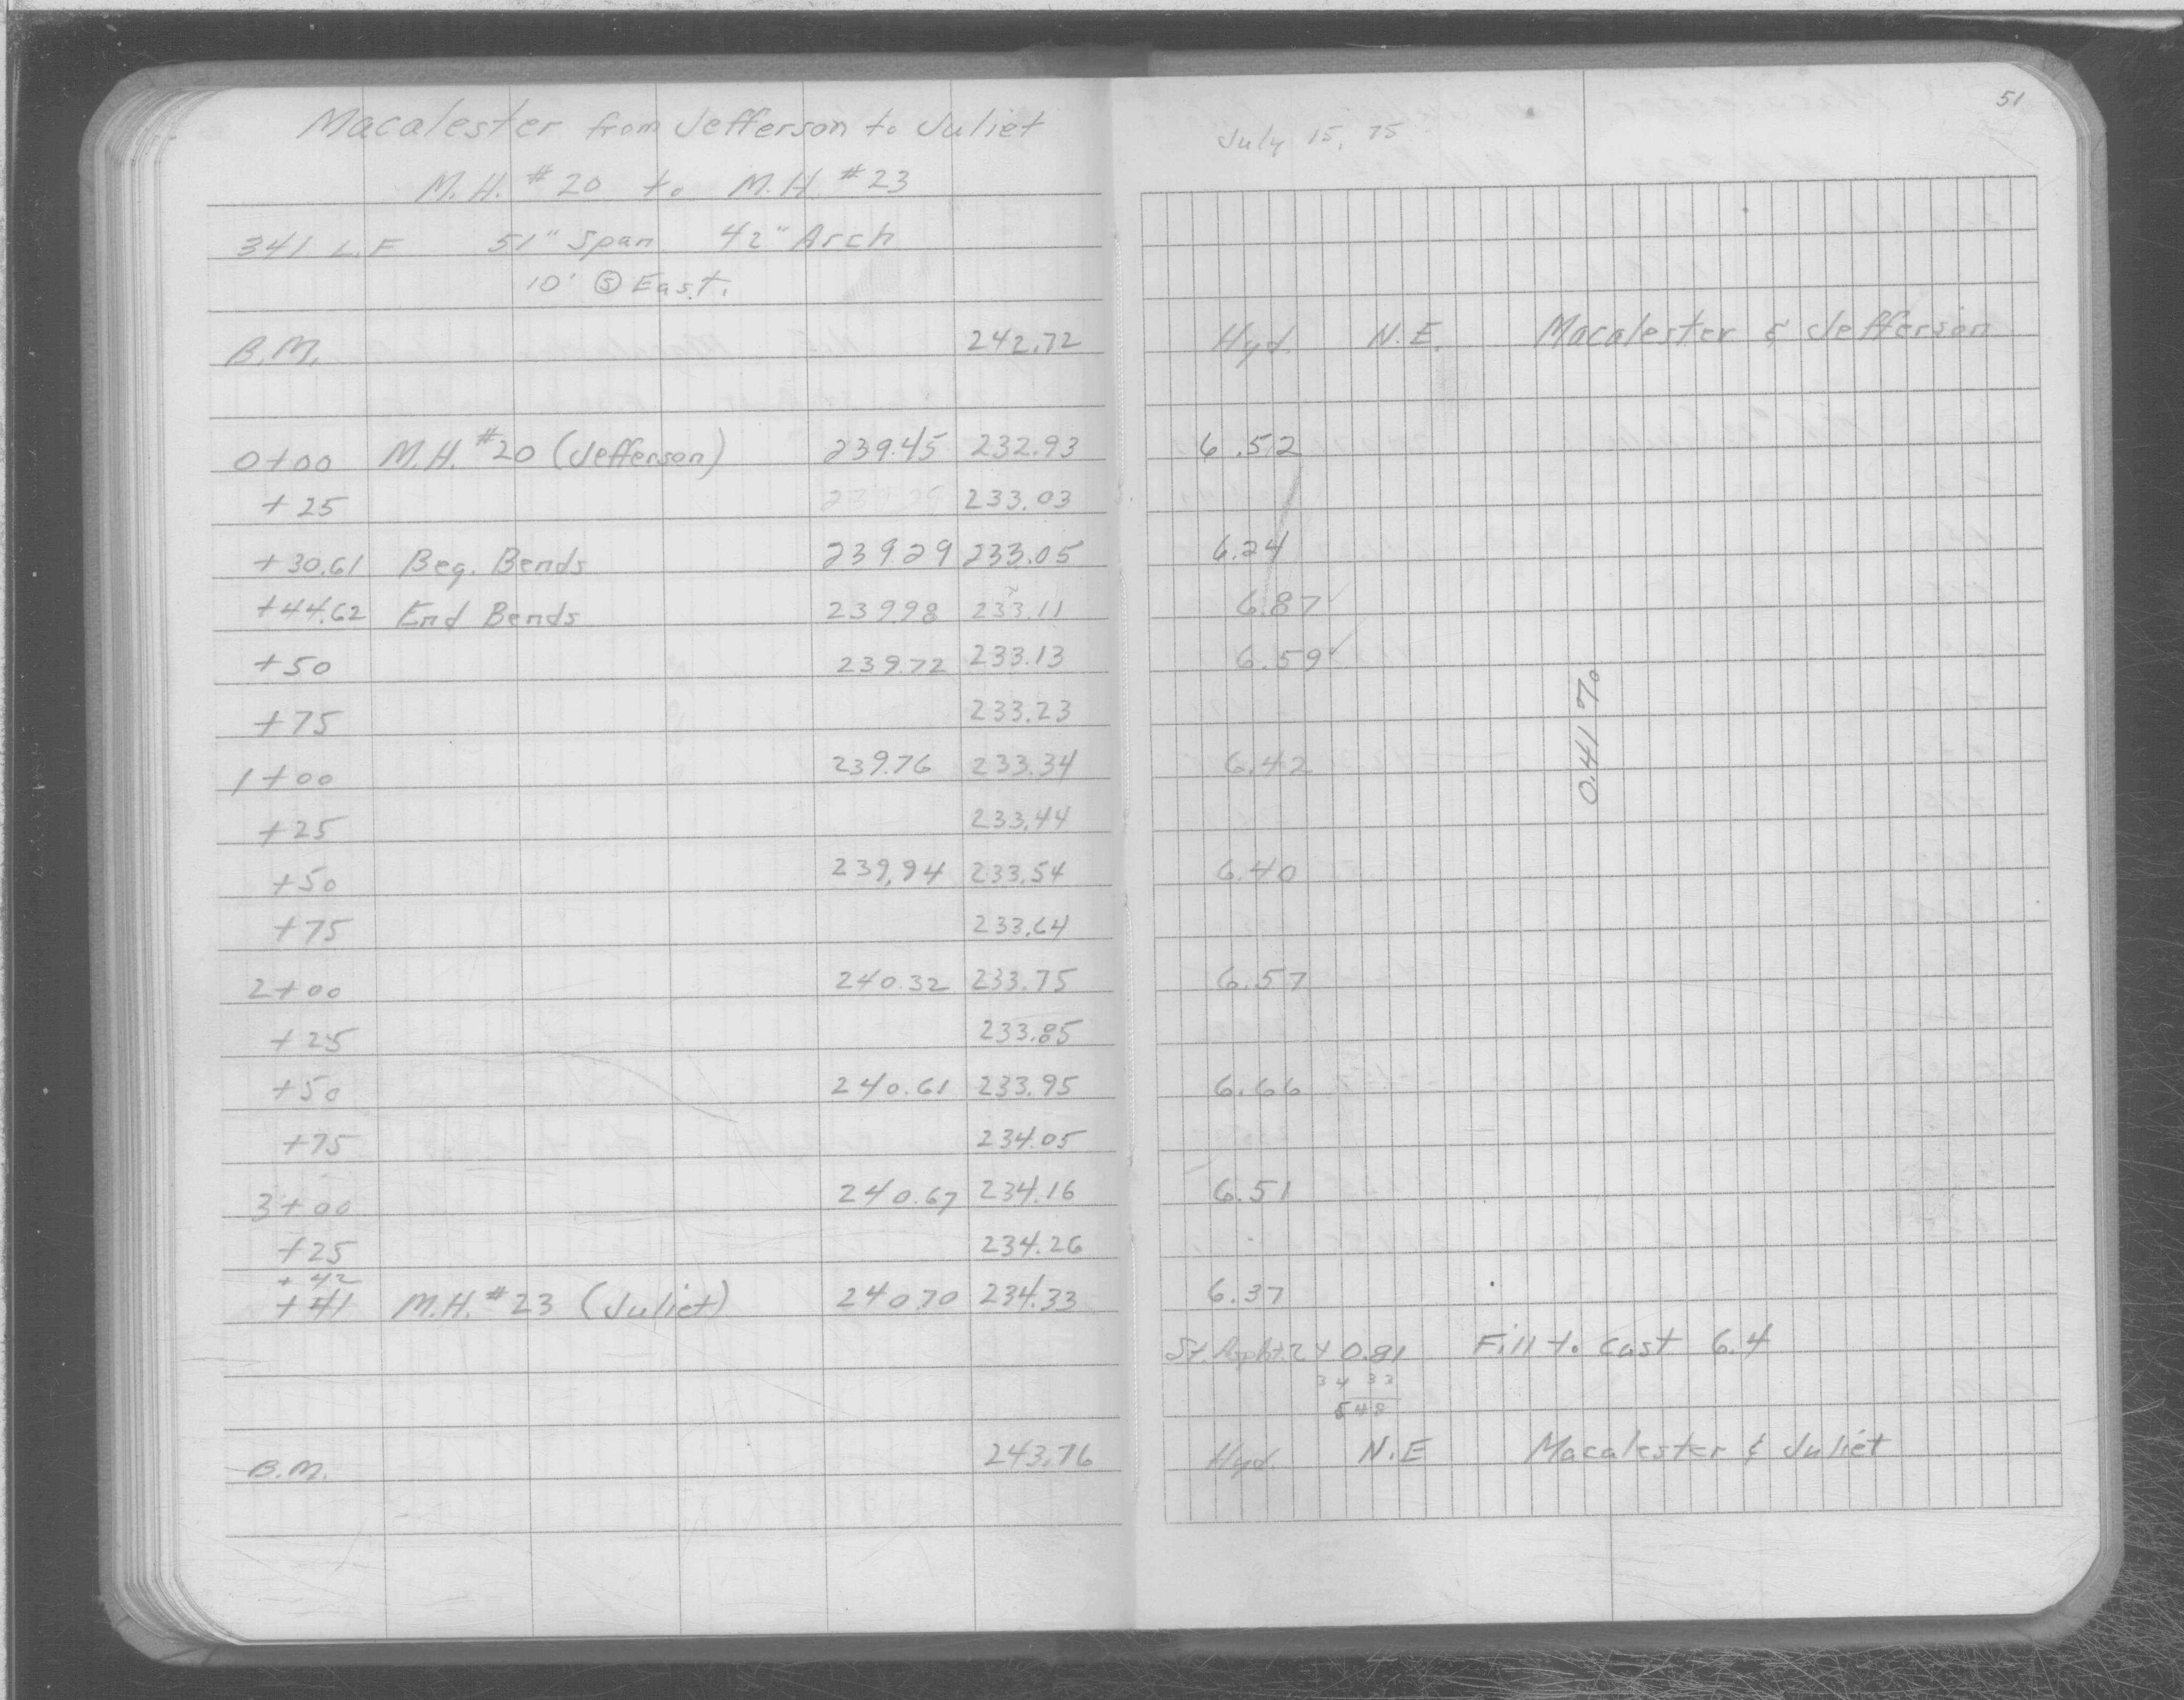 Macalester from Jefferson to Juliet
M.H. #20 to M.H. #23
341 L.F 51" Span 42" Arch
10' Ⓢ East.
B.M. 242.72
0+00 M.H. #20 (Jefferson) 239.45 232.93
+25 239.29 233.03
+30.61 Beg. Bends 239.29 233.05
+44.62 End Bends 239.98 233.11
+50 239.72 233.13
+75 233.23
1+00 239.76 233.34
+25 233.44
+50 239.94 233.54
+75 233.64
2+00 240.32 233.75
+25 233.85
+50 240.61 233.95
+75 234.05
3+00 240.67 234.16
+25 234.26
+42
+41 M.H. #23 (Juliet) 240.70 234.33
B.M. 243.76
51
July 15, 75
Hyd. N.E. Macalester & Jefferson
6.52
6.24
6.87
6.59
0.41%
6.42
6.40
6.57
6.66
6.51
6.37
St. 240.81 Fill to cast 6.4
34 33
648
Hyd. N.E Macalester & Juliet